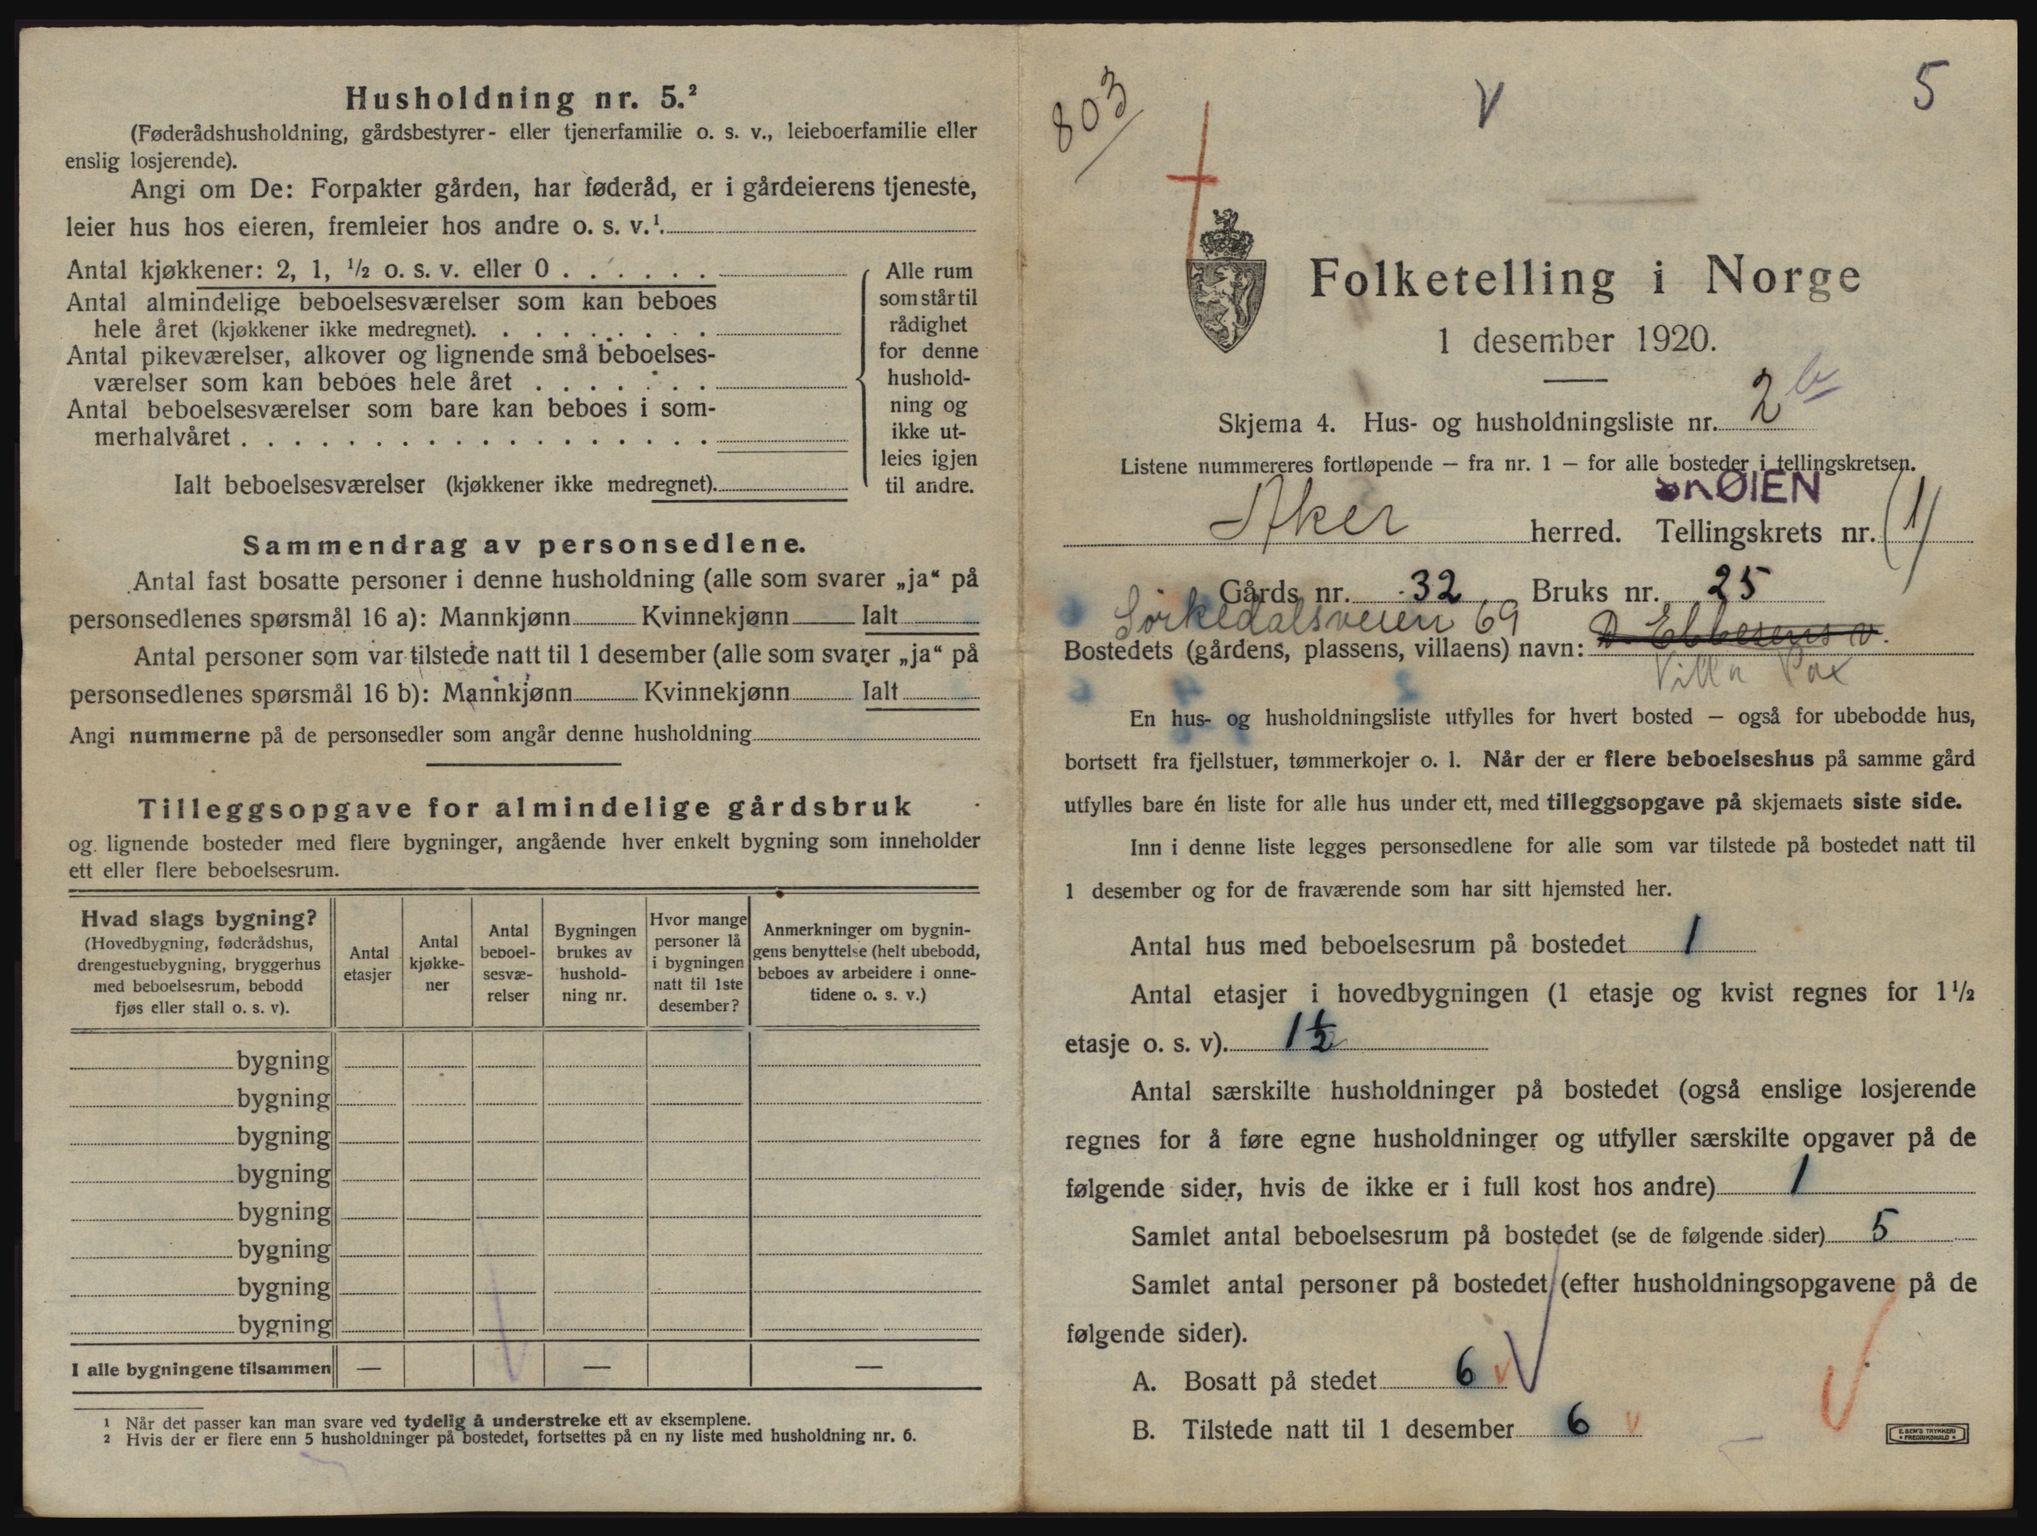 Husholdning nr. 5.²
(Føderådshusholdning, gårdsbestyrer- eller tjenerfamilie o. s. v., leieboerfamilie eller
enslig losjerende).
Angi om De: Forpakter gården, har føderåd, er i gårdeierens tjeneste,
leier hus hos eieren, fremleier hos andre o. s. v.¹.
Antal kjøkkener: 2, 1, ½ o. s. v. eller 0 . . . . . .
Antal almindelige beboelsesværelser som kan beboes
hele året (kjøkkener ikke medregnet). . . . . . . . .
Antal pikeværelser, alkover og lignende små beboelses-
værelser som kan beboes hele året . . . . . . .
Antal beboelsesværelser som bare kan beboes i som-
merhalvåret . . . . . . . . . . . . . . . . . .
Ialt beboelsesværelser (kjøkkener ikke medregnet).
Alle rum
som står til
rådighet
for denne
hushold-
ning og
ikke ut-
leies igjen
til andre.
Sammendrag av personsedlene.
Antal fast bosatte personer i denne husholdning (alle som svarer „ja“ på
personsedlenes spørsmål 16 a): Mannkjønn Kvinnekjønn Ialt
Antal personer som var tilstede natt til 1 desember (alle som svarer „ja“ på
personsedlenes spørsmål 16 b): Mannkjønn Kvinnekjønn Ialt
Angi nummerne på de personsedler som angår denne husholdning
Tilleggsopgave for almindelige gårdsbruk
og lignende bosteder med flere bygninger, angående hver enkelt bygning som inneholder
ett eller flere beboelsesrum.
Hvad slags bygning?
(Hovedbygning, føderådshus,
drengestuebygning, bryggerhus
med beboelsesrum, bebodd
fjøs eller stall o. s. v).
Antal
etasjer
Antal
kjøkke-
ner
Antal
beboel-
sesvæ-
relser
Bygningen
brukes av
hushold-
ning nr.
Hvor mange
personer lå
i bygningen
natt til 1ste
desember?
Anmerkninger om bygnin-
gens benyttelse (helt ubebodd,
beboes av arbeidere i onne-
tidene o. s. v.)
bygning
bygning
bygning
bygning
bygning
bygning
bygning
bygning
I alle bygningene tilsammen — — —
¹ Når det passer kan man svare ved tydelig å understreke ett av eksemplene.
² Hvis der er flere enn 5 husholdninger på bostedet, fortsettes på en ny liste med husholdning nr. 6.
803
5
Folketelling i Norge
1 desember 1920.
Skjema 4. Hus- og husholdningsliste nr. 2 b
Listene nummereres fortløpende — fra nr. 1 — for alle bosteder i tellingskretsen.
SKØIEN
Aker herred. Tellingskrets nr. (1)
Gårds nr. 32 Bruks nr. 25
Sörkedalsveien 69
Bostedets (gårdens, plassens, villaens) navn: D. Ebbesens v.
Villa Pax
En hus- og husholdningsliste utfylles for hvert bosted — også for ubebodde hus,
bortsett fra fjellstuer, tømmerkojer o. l. Når der er flere beboelseshus på samme gård
utfylles bare én liste for alle hus under ett, med tilleggsopgave på skjemaets siste side.
Inn i denne liste legges personsedlene for alle som var tilstede på bostedet natt til
1 desember og for de fraværende som har sitt hjemsted her.
Antal hus med beboelsesrum på bostedet 1
Antal etasjer i hovedbygningen (1 etasje og kvist regnes for 1½
etasje o. s. v). 1½
Antal særskilte husholdninger på bostedet (også enslige losjerende
regnes for å føre egne husholdninger og utfyller særskilte opgaver på de
følgende sider, hvis de ikke er i full kost hos andre) 1
Samlet antal beboelsesrum på bostedet (se de følgende sider) 5
Samlet antal personer på bostedet (efter husholdningsopgavene på de
følgende sider).
A. Bosatt på stedet 6
B. Tilstede natt til 1 desember 6
E. SEM'S TRYKKERI
FREDRIKSHALD